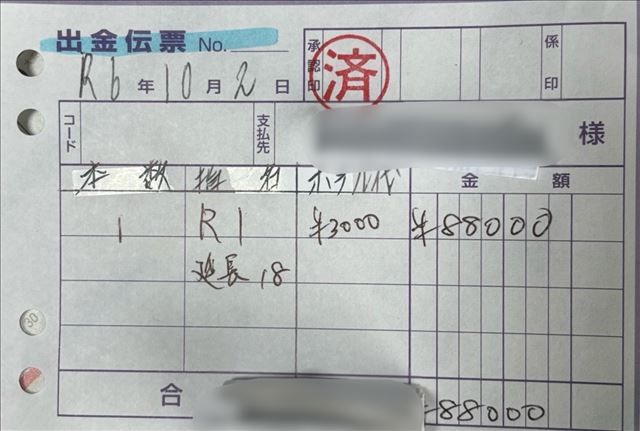 出金伝票 No.
R6年10月2日
承認印
済
係印
コード
支払先
様
本数 指名 ホテル代 金額
1 R1 ¥3000 ¥88000
延長 18
合
88000
30